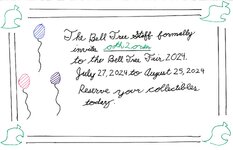 The Bell Tree Staff formally
invite
to the Bell Tree Fair 2024.
July 27, 2024 to August 25, 2024
Reserve your collectibles
today.